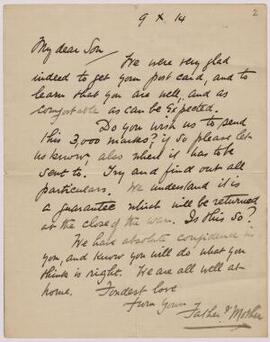 2
9 X 14
My dear Son
We were very glad
indeed to get your post card, and to
learn that you are well, and as
comfortable as can be expected.
Do you wish us to send
this 3,000 marks? if so please let
us know, also where it has to be
sent to. Try and find out all
particulars. We understand it is
a guarantee which will be returned
at the close of the war. Is this so?
We have absolute confidence in
you, and know you will do what you
think is right. We are all well at
home. Fondest love
from your
Father & Mother